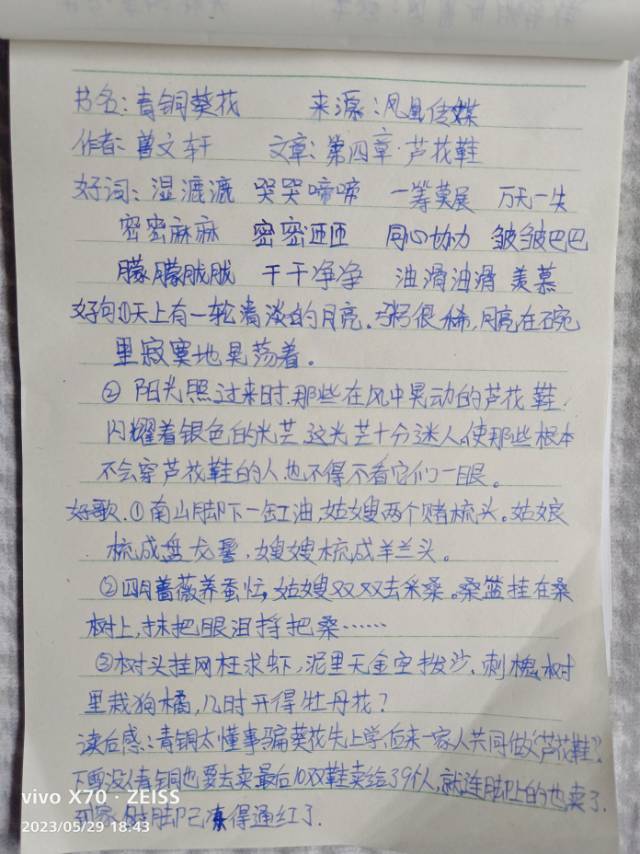 书名:青铜葵花 来源:凤凰传媒
作者:曹文轩 文章:第四章·芦花鞋
好词:湿漉漉 哭哭啼啼 一筹莫展 万无一失
密密麻麻 密密匝匝 同心协力 皱皱巴巴
朦朦胧胧 干干净净 油滑油滑 羡慕
好句①天上有一轮清淡的月亮.粥很稀,月亮在碗
里寂寞地晃荡着。
② 阳光照过来时.那些在风中晃动的芦花鞋.
闪耀着银色的光芒.这光芒十分迷人.使那些根本
不会穿芦花鞋的人也不得不看它们一眼。
好歌.①南山脚下一缸油,姑嫂两个赌梳头。姑娘
梳成盘龙髻,嫂嫂梳成羊兰头。
②四月蔷薇养蚕忙,姑嫂双双去采桑。桑篮挂在桑
树上,抹把眼泪捋把桑……
③树头挂网枉求虾,泥里无金空拨沙.刺槐树
里栽狗橘,几时开得牡丹花?
读后感:青铜太懂事骗葵花先上学,后来一家人共同做“芦花鞋”
青铜也要去卖最后10双鞋卖给了9个人,就连脚上的也卖了.
脚已冻得通红了.
vivo X70 · ZEISS
2023/05/29 18:43